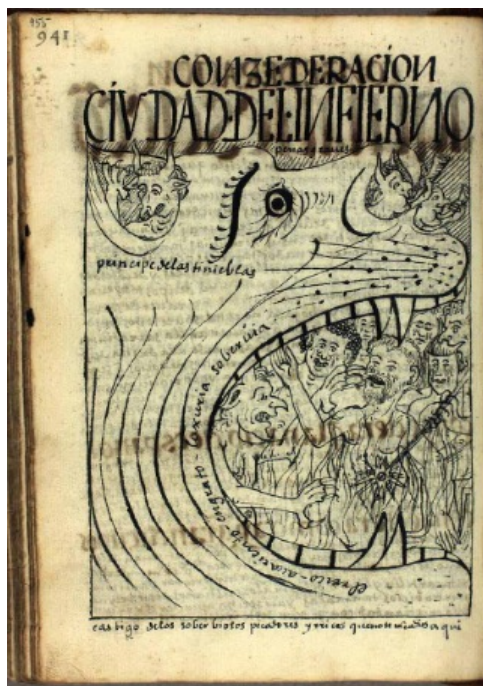 955
941
CONZEDERACION
CIVDAD·DEL·INFIERNO
penas graues
principe de las tinieblas
el rrico - auariento - yngrato - luxuria - soberuia
castigo de los soberbiosos pecadores y rricos que no temen a dios